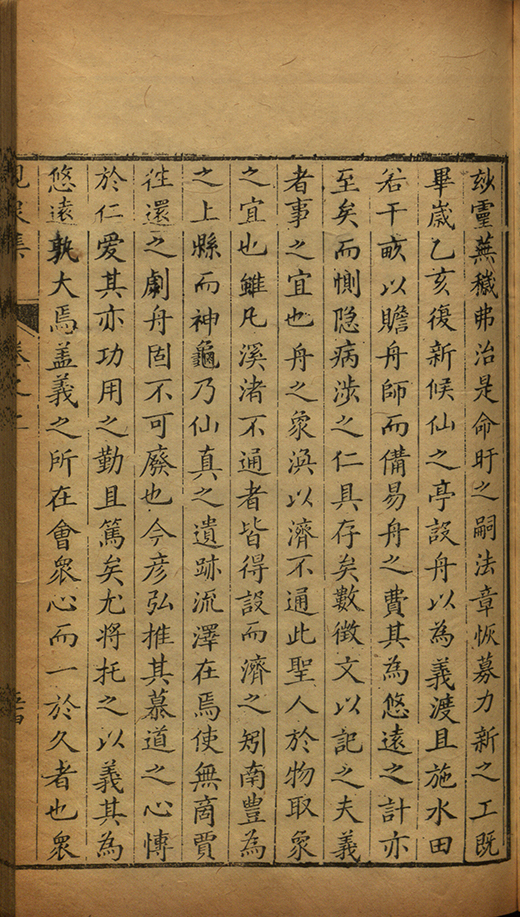 玅靈蕪穢弗治是命盱之嗣法章恢募力新之工既
畢歲乙亥復新候仙之亭設舟以為義渡且施水田
若干畝以贍舟師而備易舟之費其為悠遠之計亦
至矣而惻隐病涉之仁具存矣數徴文以記之夫義
者事之宜也舟之象渙以濟不通此聖人於物取象
之宜也雖凡溪渚不通者皆得設而濟之矧南豊為
之上縣而神龜乃仙真之遺跡流澤在焉使無商賈
徃還之劇舟固不可廢也今彦弘推其慕道之心慱
於仁爱其亦功用之勤且篤矣尤將托之以義其為
悠遠孰大焉盖義之所在會衆心而一於久者也衆
泉集 卷之